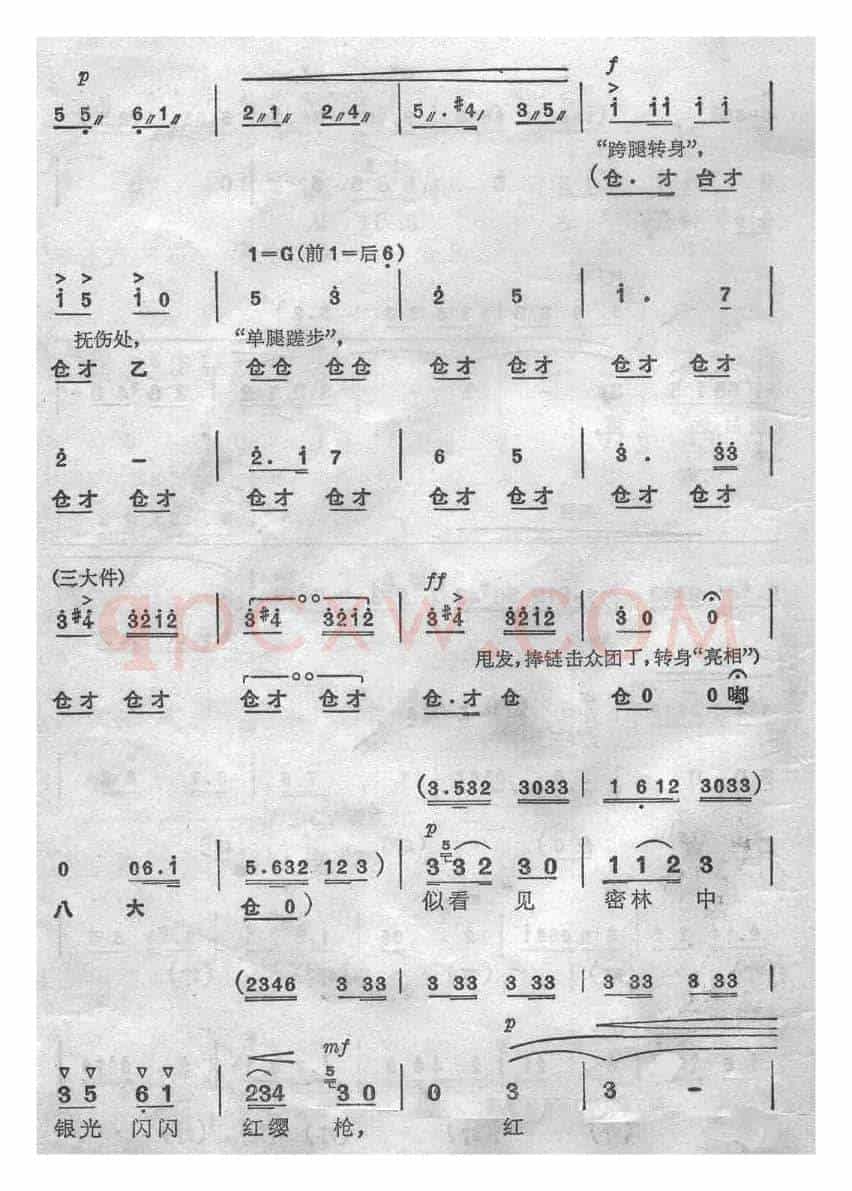 p
5 5 6 1 | 2 1 2 4 | 5 . #4 3 5 | i i i i i
f
“跨腿转身”,
(仓 . 才 台 才
1=G(前1=后6)
i 5 i 0 | 5 3 | 2 5 | i . 7
抚伤处, “单腿蹉步”,
仓 才 乙 仓 仓 仓 仓 仓 才 仓 才 仓 才 仓 才
2 - | 2 . i 7 | 6 5 | 3 . 3 3
仓 才 仓 才 仓 才 仓 才 仓 才 仓 才 仓 才 仓 才
(三大件) ff
3 #4 3 2 i 2 | 3 #4 3 2 i 2 | 3 #4 3 2 i 2 | 3 0 0
甩发,捧链击众团丁,转身“亮相”)
仓 才 仓 才 仓 才 仓 才 仓 . 才 仓 仓 0 0 嘟
(3.532 3033 | 1 6 12 3033)
p
0 06.i | 5.632 12 3) | 5 3 3 2 3 0 | 1 1 2 3
八 大 仓 0) 似看 见 密林 中
(2346 3 33 | 3 33 3 33 | 3 33 3 33
mf p
3 5 6 1 | 234 5 3 0 | 0 3 | 3 -
银光 闪闪 红缨 枪, 红
qpcxw.com